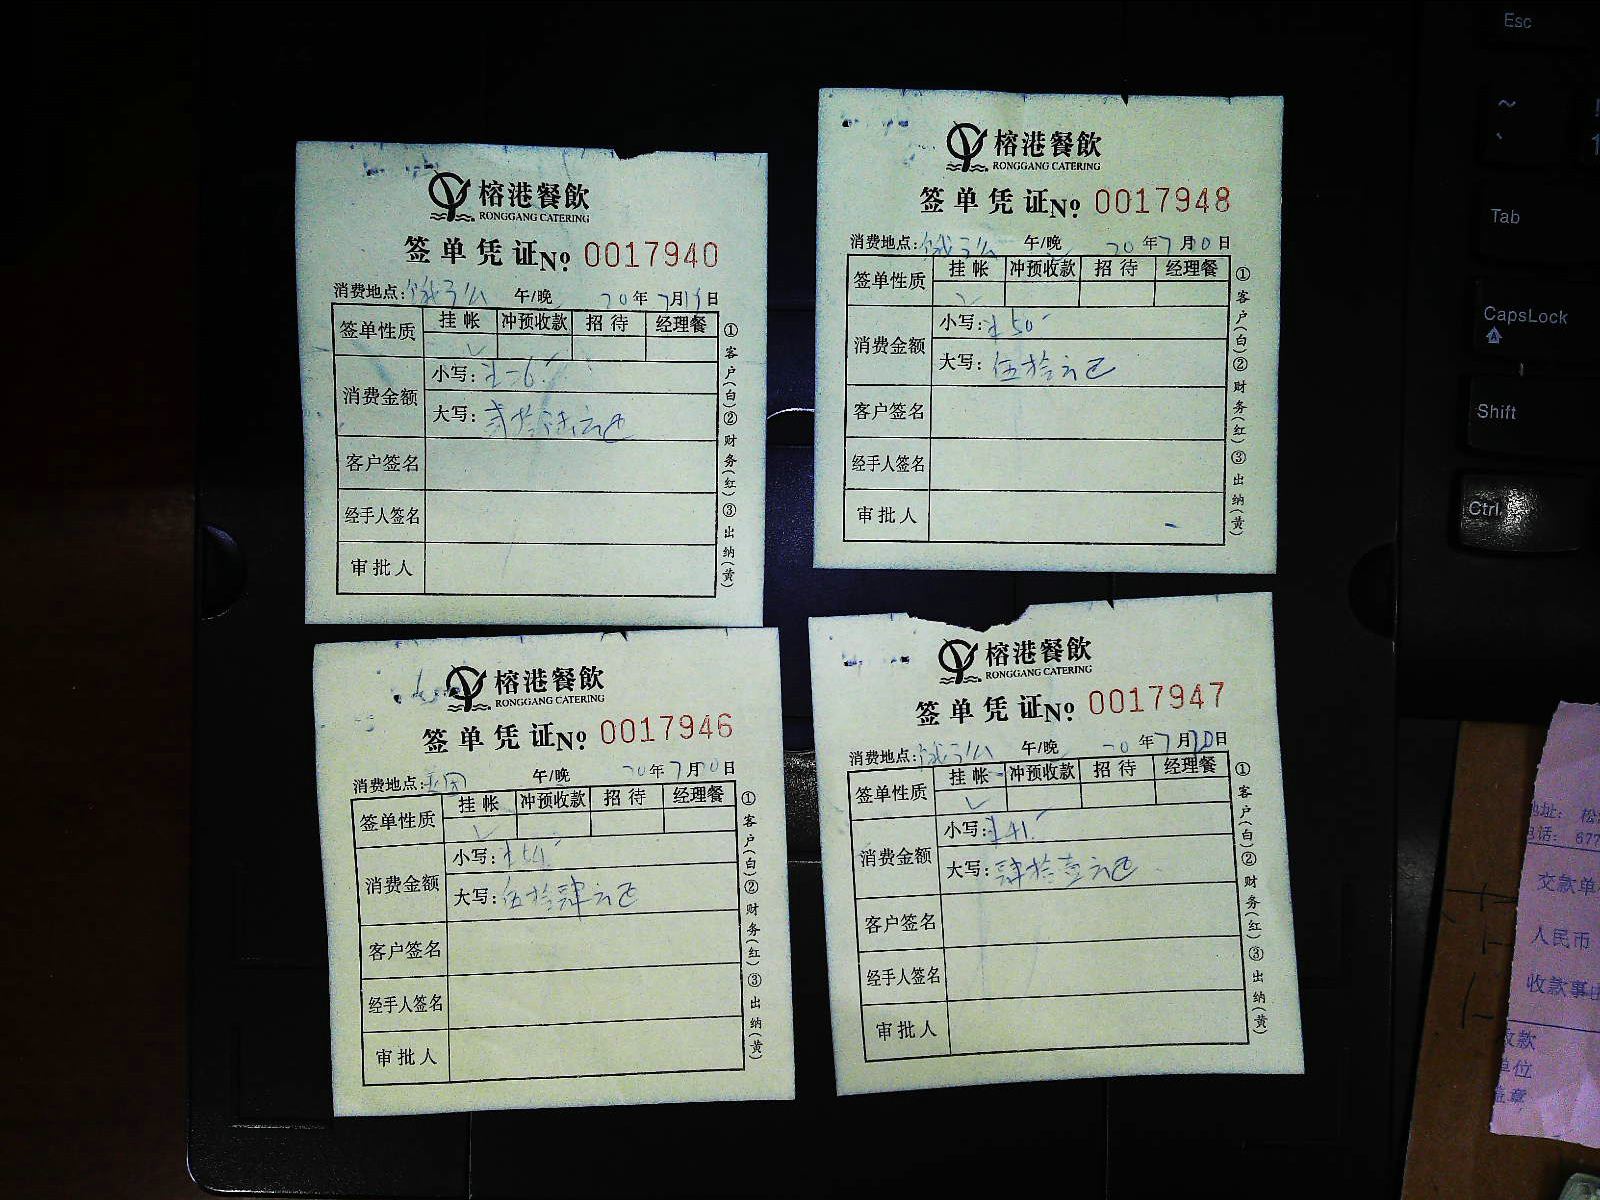 榕港餐飲
RONGGANG CATERING
签单凭证No 0017940
消费地点: 午/晚 年7月19日
签单性质 挂帐 冲预收款 招待 经理餐
消费金额
小写:
大写: 贰拾陆元
客户签名
经手人签名
审批人
①客户(白)②财务(红)③出纳(黄)
榕港餐飲
RONGGANG CATERING
签单凭证No 0017948
消费地点: 午/晚 20年7月20日
签单性质 挂帐 冲预收款 招待 经理餐
消费金额
小写:¥50
大写: 伍拾元
客户签名
经手人签名
审批人
①客户(白)②财务(红)③出纳(黄)
榕港餐飲
RONGGANG CATERING
签单凭证No 0017946
消费地点: 午/晚 20年7月20日
签单性质 挂帐 冲预收款 招待 经理餐
消费金额
小写:¥54
大写: 伍拾肆元
客户签名
经手人签名
审批人
①客户(白)②财务(红)③出纳(黄)
榕港餐飲
RONGGANG CATERING
签单凭证No 0017947
消费地点: 午/晚 20年7月20日
签单性质 挂帐 冲预收款 招待 经理餐
消费金额
小写:¥41
大写: 肆拾壹元
客户签名
经手人签名
审批人
①客户(白)②财务(红)③出纳(黄)
Esc
Tab
CapsLock
Shift
Ctrl
地址: 松
电话: 677
交款单
人民币
收款事由
收款
单位
盖章